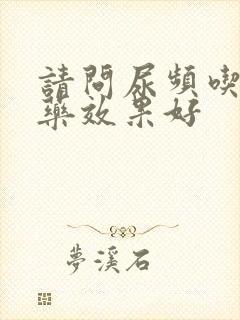 請問尿頻喫
藥效果好
夢溪石